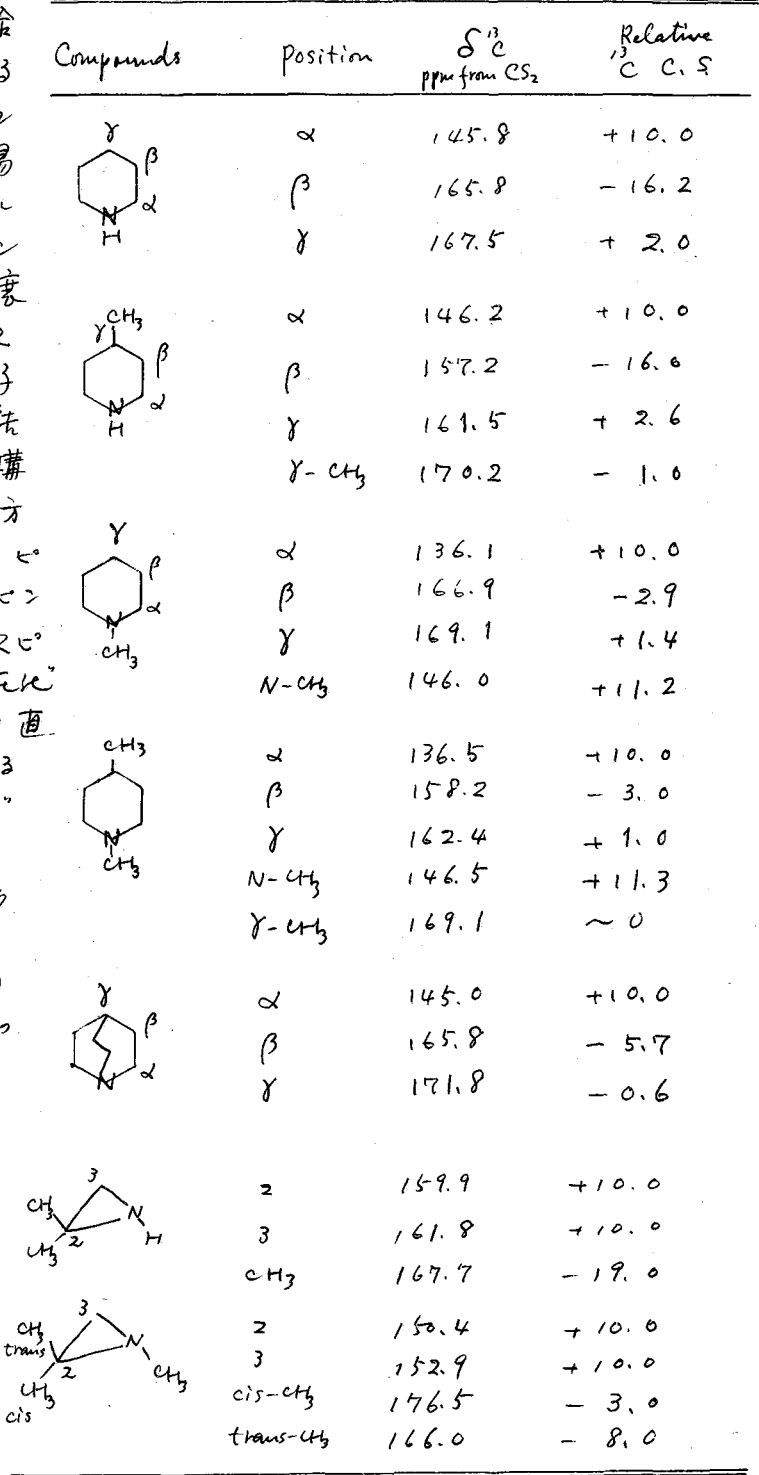 Compounds Position δ ¹³C ppm from CS₂ Relative ¹³C C.S.
γ
β
α
N
H
α 145.8 +10.0
β 165.8 - 16.2
γ 167.5 + 2.0
CH₃
γ
β
α
N
H
α 146.2 +10.0
β 157.2 - 16.0
γ 161.5 + 2.6
γ-CH₃ 170.2 - 1.0
γ
β
α
N
CH₃
α 136.1 +10.0
β 166.9 -2.9
γ 169.1 +1.4
N-CH₃ 146.0 +11.2
CH₃
N
CH₃
α 136.5 +10.0
β 158.2 - 3.0
γ 162.4 + 1.0
N-CH₃ 146.5 +11.3
γ-CH₃ 169.1 ~ 0
γ
β
α
N
α 145.0 +10.0
β 165.8 - 5.7
γ 171.8 - 0.6
3
CH₃
N
H
2
CH₃
2 159.9 +10.0
3 161.8 +10.0
CH₃ 167.7 - 19.0
3
CH₃
trans
N
2
CH₃
CH₃
cis
2 150.4 + 10.0
3 152.9 + 10.0
cis-CH₃ 176.5 - 3.0
trans-CH₃ 166.0 - 8.0